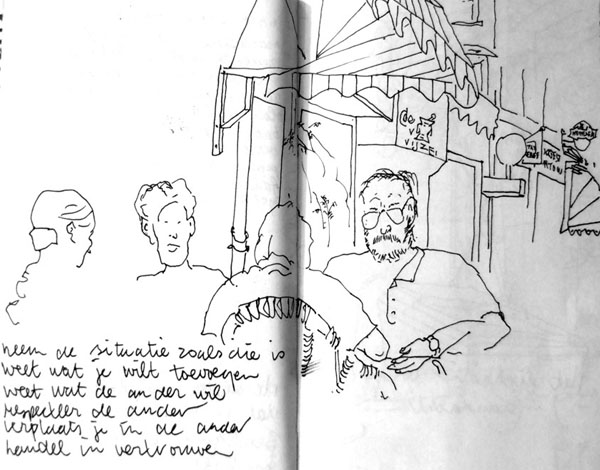 de
neem de situatie zoals die is
weet wat je wilt toevoegen
weet wat de ander wil
respecteer de ander
verplaats je in de ander
handel in vertrouwen